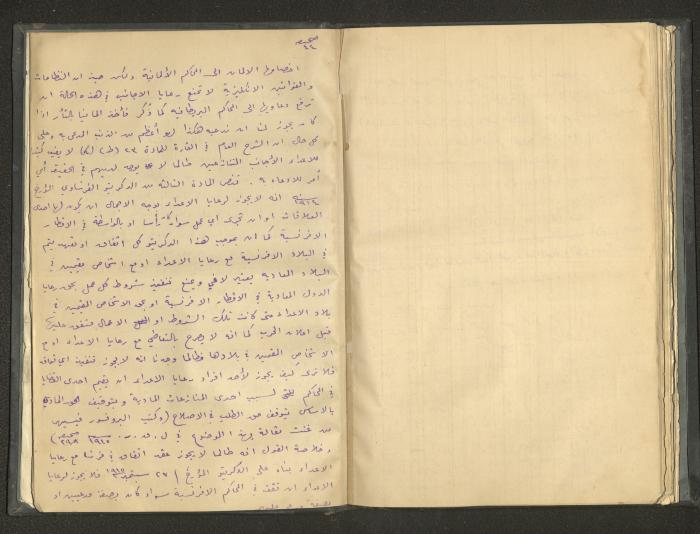 صحيفة
٤٤
اختصاصها الالمان الى المحاكم الألمانية ولكن حيث ان النظامات
والقوانين الانكليزية لا تمنع رعايا الاجانب في هذه الحالة ان
ترفع دعاويها الى المحاكم البريطانية كما ذُكر فأخذ المانيا بالثأر اذا
كان يجوز لنا ان ندعيه هكذا لهو أعظم من الذنب المدعى به وعلى
كل حال ان الشرح العام في الفقرة للمادة ٢٣ (ط) لا يفيد كثيرا
للاعداء الأجانب المتنازعين طالما لا يوجد لديهم في الحقيقة أي
أمر للادعاء ٩ . تنص المادة الثالثة من الدكريتو الفرنساوي المؤرخ
انه لا يجوز لرعايا الاعداء بوجه الاجمال ان يكون لها احدى
العلاقات او ان تجرى اي عمل سواء كان رأسا او بالواسطة في الاقطار
الافرنسية كما ان بموجب هذا الدكريتو كل اتفاق او تعهد يتم
في البلاد الافرنسية مع رعايا الاعداء او مع اشخاص مقيمين في
البلاد المعادية يعتبر لاغي ويمنع تنفيذ شروط كل عمل بحق رعايا
الدول المعادية في الاقطار الافرنسية او على الاشخاص المقيمين في
بلاد الاعداء متى كانت تلك الشروط او الاعمال متفق عليها
قبل اعلان الحرب كما انه لا يصرح بالتعاطي مع رعايا الاعداء او مع
الاشخاص المقيمين في بلادها فطالما وجدنا انه لا يجوز تنفيذ اي اتفاق
فلا نرى كيف يجوز لأحد افراد رعايا الاعداء ان يقيم احدى القضايا
في المحاكم بسبب احدى المنازعات المادية وبتوقيف الحق المادي
بالاساس يتوقف حق الطلب في الاصلاح (وكتب البروفسور
من غنت مقالة بهذا الموضوع في ل . ق . ر . ١٩١٥ صحيفة )
وخلاصة القول انه طالما لا يجوز عقد اتفاق في فرنسا مع رعايا
الاعداء بناء على الدكريتو المؤرخ ٢٧ سبتمبر ١٩١٤ فلا يجوز لرعايا
الاعداء ان تقف في المحاكم الافرنسية سواء كان بصفة مدعيين او